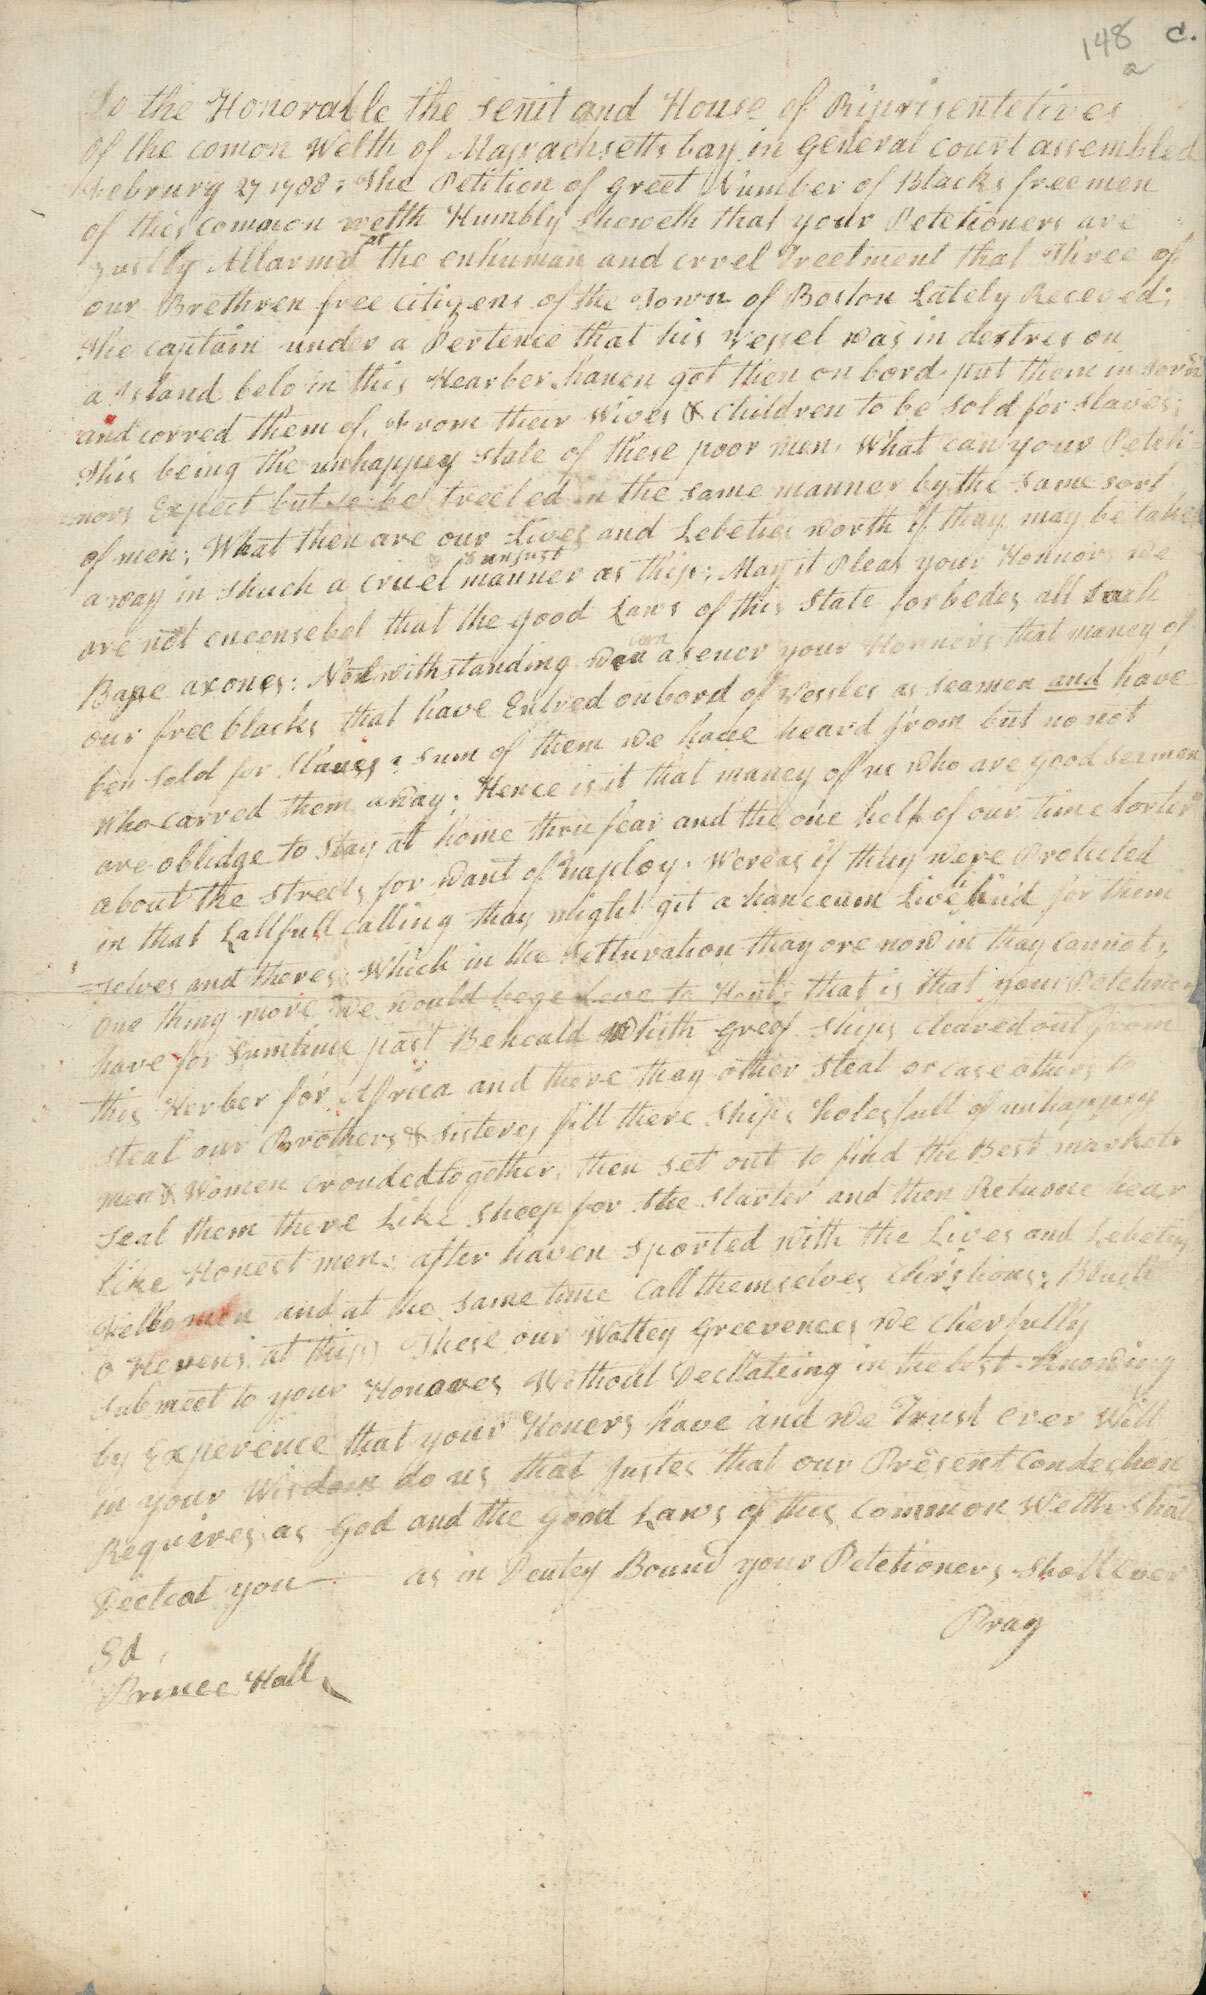 148 C.
a
To the Honorable the Senit and House of Riprisentetives
of the comon Welth of Massachsetts bay in general court assembled
Februry 27 1788: The Petition of greet Number of Blacks freemen
of this common welth Humbly sheweth that your Petetioners are
justly Allarmd at the enhuman and cruel Treetment that Three of
our Brethren free citizens of the Town of Boston lately Receved;
The captain under a Pertence that his vessel was in destres on
a Island belo in this Hearber haven got then on bord put them in iorns
and corred them of, from their Wives & Children to be sold for slaves;
This being the unhappey state of these poor men What can your Peteti-
nors Expect but to be treeted in the same manner by the same sort
of men; What then are our Lives and Lebeties worth if they may be taken
away in shuch a cruel & unjust manner as this; May it Pleas your Honnors we
are not encensebel that the good Laws of this State forbedes all such
Base axones: Notwithstanding we can aseuer your Honners that maney of
our free blacks that have Entred onbord of vessles as seamen and have
ben sold for Slaves & sum of them we have heard from but no not
who carred them away; Hence is it that maney of us who are good seamen
are oblidge to stay at home thru fear and the one helf of our time lorter
about the streets for want of imploy; Wereas if they were Protected
in that Lallfull calling thay might git a hanceum Livelihud for them
selves and theres: Which in the setturation thay are now in thay cannot.
One thing more we would bege Leve to Hent, that is that your Petetinors
have for sumtime past Beheald whith greef ships cleared out from
this Herber for Africa and there they other steal or case others to
steal our Brothers & sisters fill there ships holes full of unhappey
men & women crouded together, then set out to find the Best markets
seal them there Like sheep for the slarter and then Returne hear
like Honest men; after haven sported with the Lives and Lebeties
fello men and at the same time call themselves Christions: Blush
o Hevens at this, These our Wattey greevences we cherfully
submeet to your Honores Without Decttateing in the lest knowing
by Experence that your Honers have and we Trust ever Will
in your Wisdom do us that Justes that our Present condechon
Requires as God and the good Laws of this Common Welth shall
Decteat you — as in Deutey Bound your Petetioners shall ever
Pray
Sd,
Prince Hall